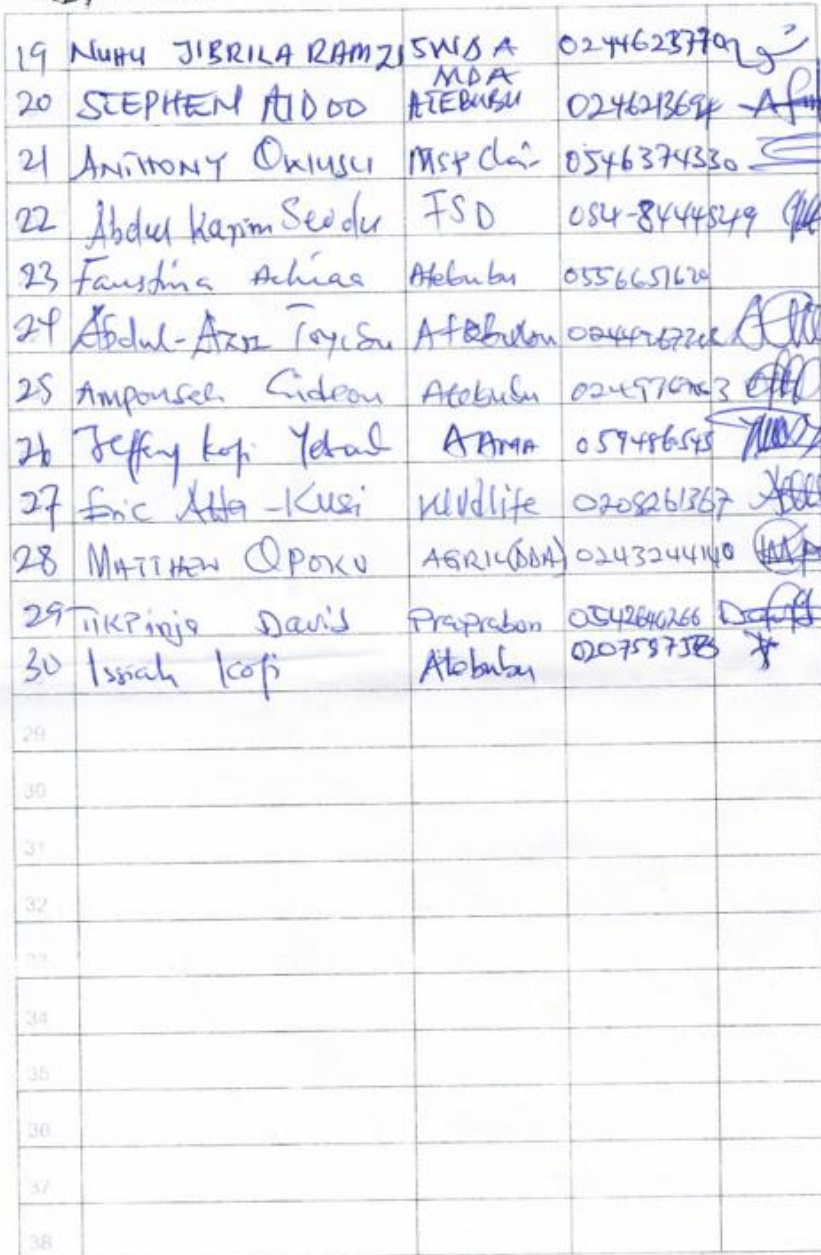 19 NUHU JIBRILA RAMZI SWDA 0244623770
20 STEPHEN AIDOO MDA ATEBUBU 0246213694
21 ANTHONY OWUSU MSP Chair 0546374330
22 Abdul Karim Seidu FSD 054-8444549
23 Faustina Achiaa Atebubu 0556651620
24 Abdul-Aziz Atebubu
25 Amponsah Gideon Atebubu
26 Jeffery Kofi AAMA 059486545
27 Eric Atta-Kusi Wildlife 0208261367
28 MATTHEW OPOKU AGRIC(DDA) 0243244140
29 TIKPinja David Praprabon 0542646266
30 Issiah Kofi Atebubu
29
30
31
32
33
34
35
36
37
38